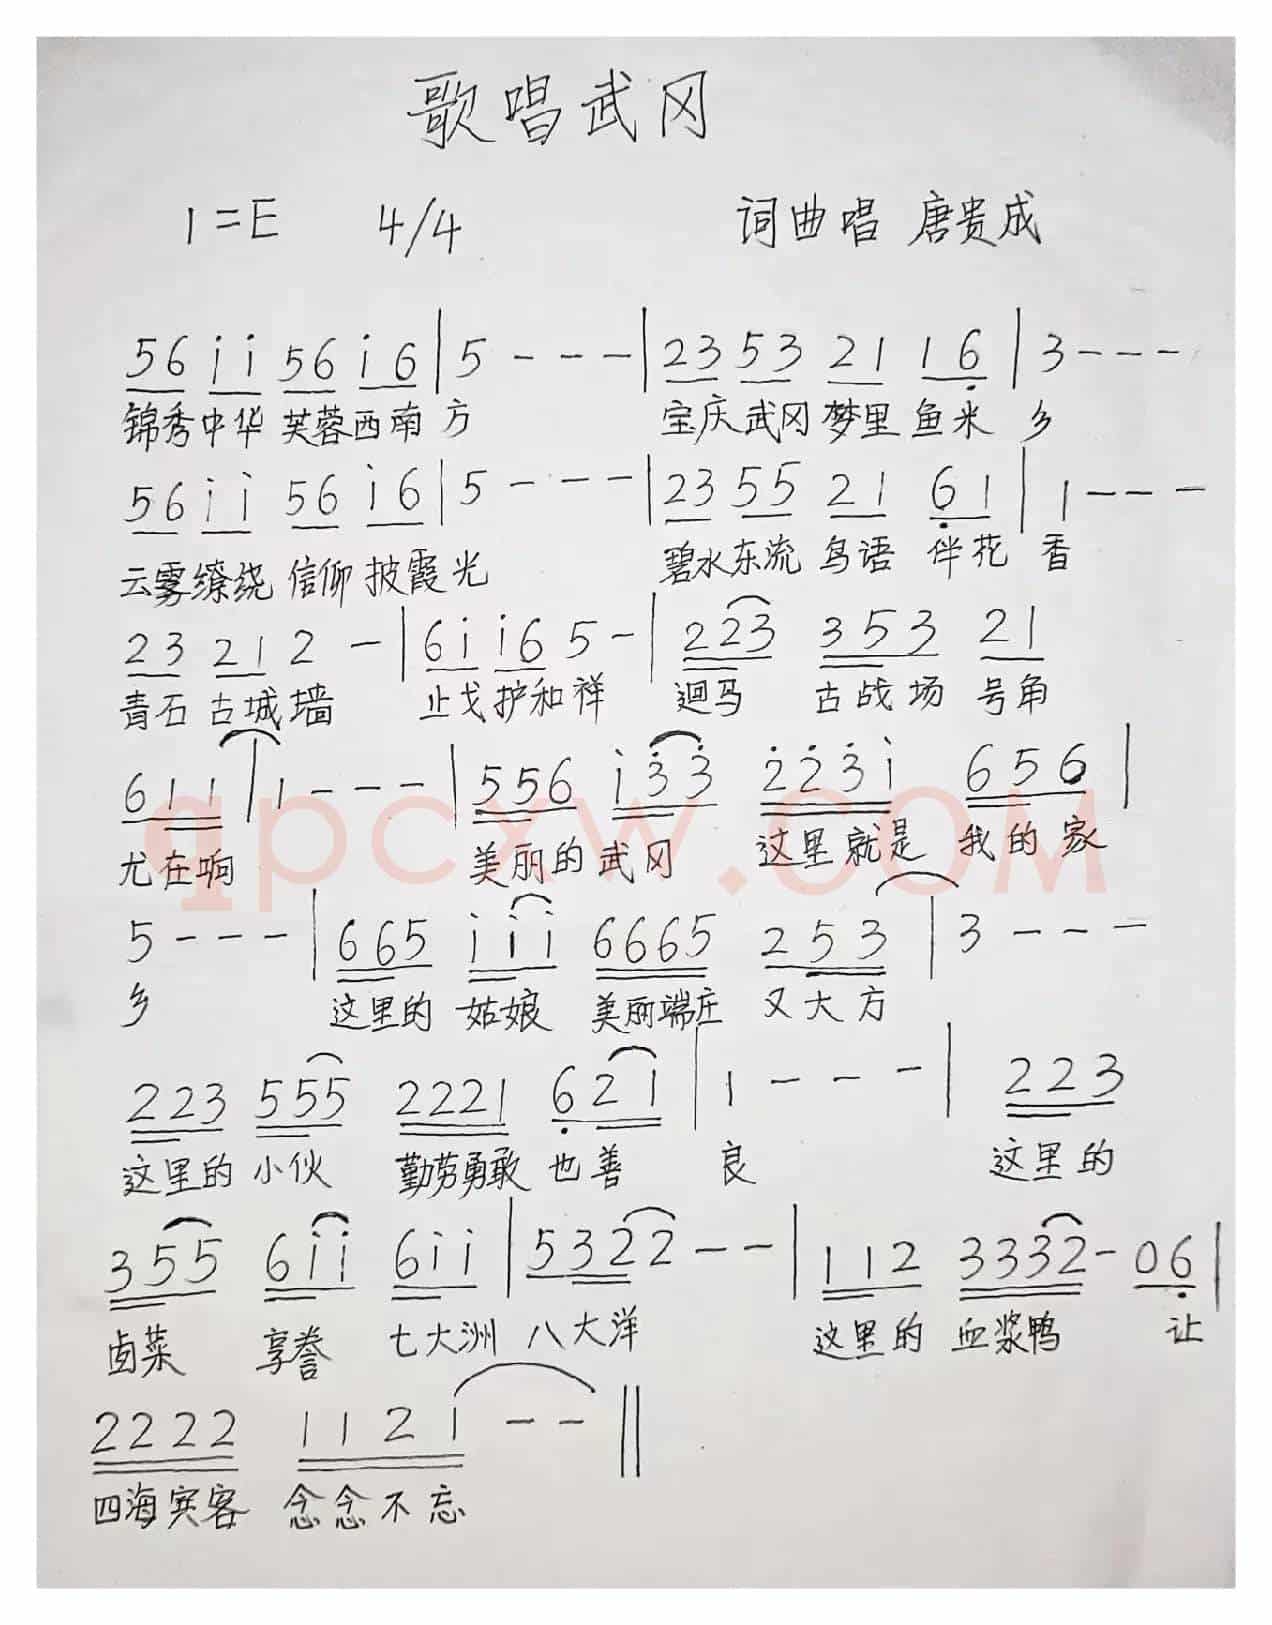 歌唱武冈
1=E 4/4 词曲唱 唐贵成
56 i̇i̇ 56 i̇6 | 5 - - - | 23 53 21 16̣ | 3 - - -
锦秀中华 芙蓉西南 方 宝庆武冈 梦里 鱼米 乡
56 i̇i̇ 56 i̇6 | 5 - - - | 23 55 21 6̣1 | 1 - - -
云雾缭绕 信仰 披霞光 碧水东流 鸟语 伴花 香
23 21 2 - | 6i̇ i̇6 5 - | 223 353 21
青石 古城墙 止戈护和祥 迴马 古战场 号角
611 | 1 - - - | 556 i̇3̇3̇ 2̇2̇3̇i̇ 656 |
尤在响 美丽的武冈 这里就是 我的家
5 - - - | 665 i̇i̇i̇ 6665 253 | 3 - - -
乡 这里的 姑娘 美丽端庄 又大方
223 555 2221 6̣21 | 1 - - - | 223
这里的 小伙 勤劳勇敢 也善 良 这里的
355 6i̇i̇ 6i̇i̇ | 5322 - - | 112 3332- 06̣ |
卤菜 享誉 七大洲 八大洋 这里的 血浆鸭 让
2222 1121 - - ‖
四海宾客 念念不忘
qpcxw.COM